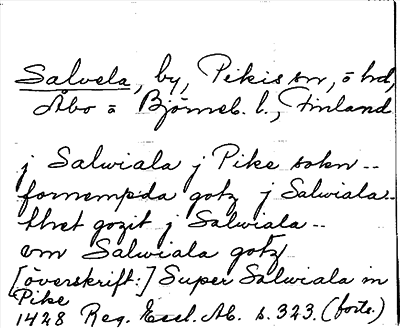 Salvela, by, Pikis sn, ö hd,
Åbo o Björneb. l., Finland
j Salwiala j Pike sokn --
fornempda gotz j Salwiala --
thet gozit j Salwiala --
vm Salwiala gotz
[överskrift:] Super Salwiala in
Pike
1428 Reg. Eccl. Ab. s. 323. (forts.)